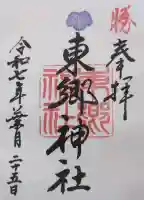 勝
奉拝
東郷神社
令和七年葉月
二十五日